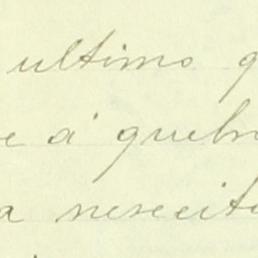 ultimo q
e á quebr
a nescecit